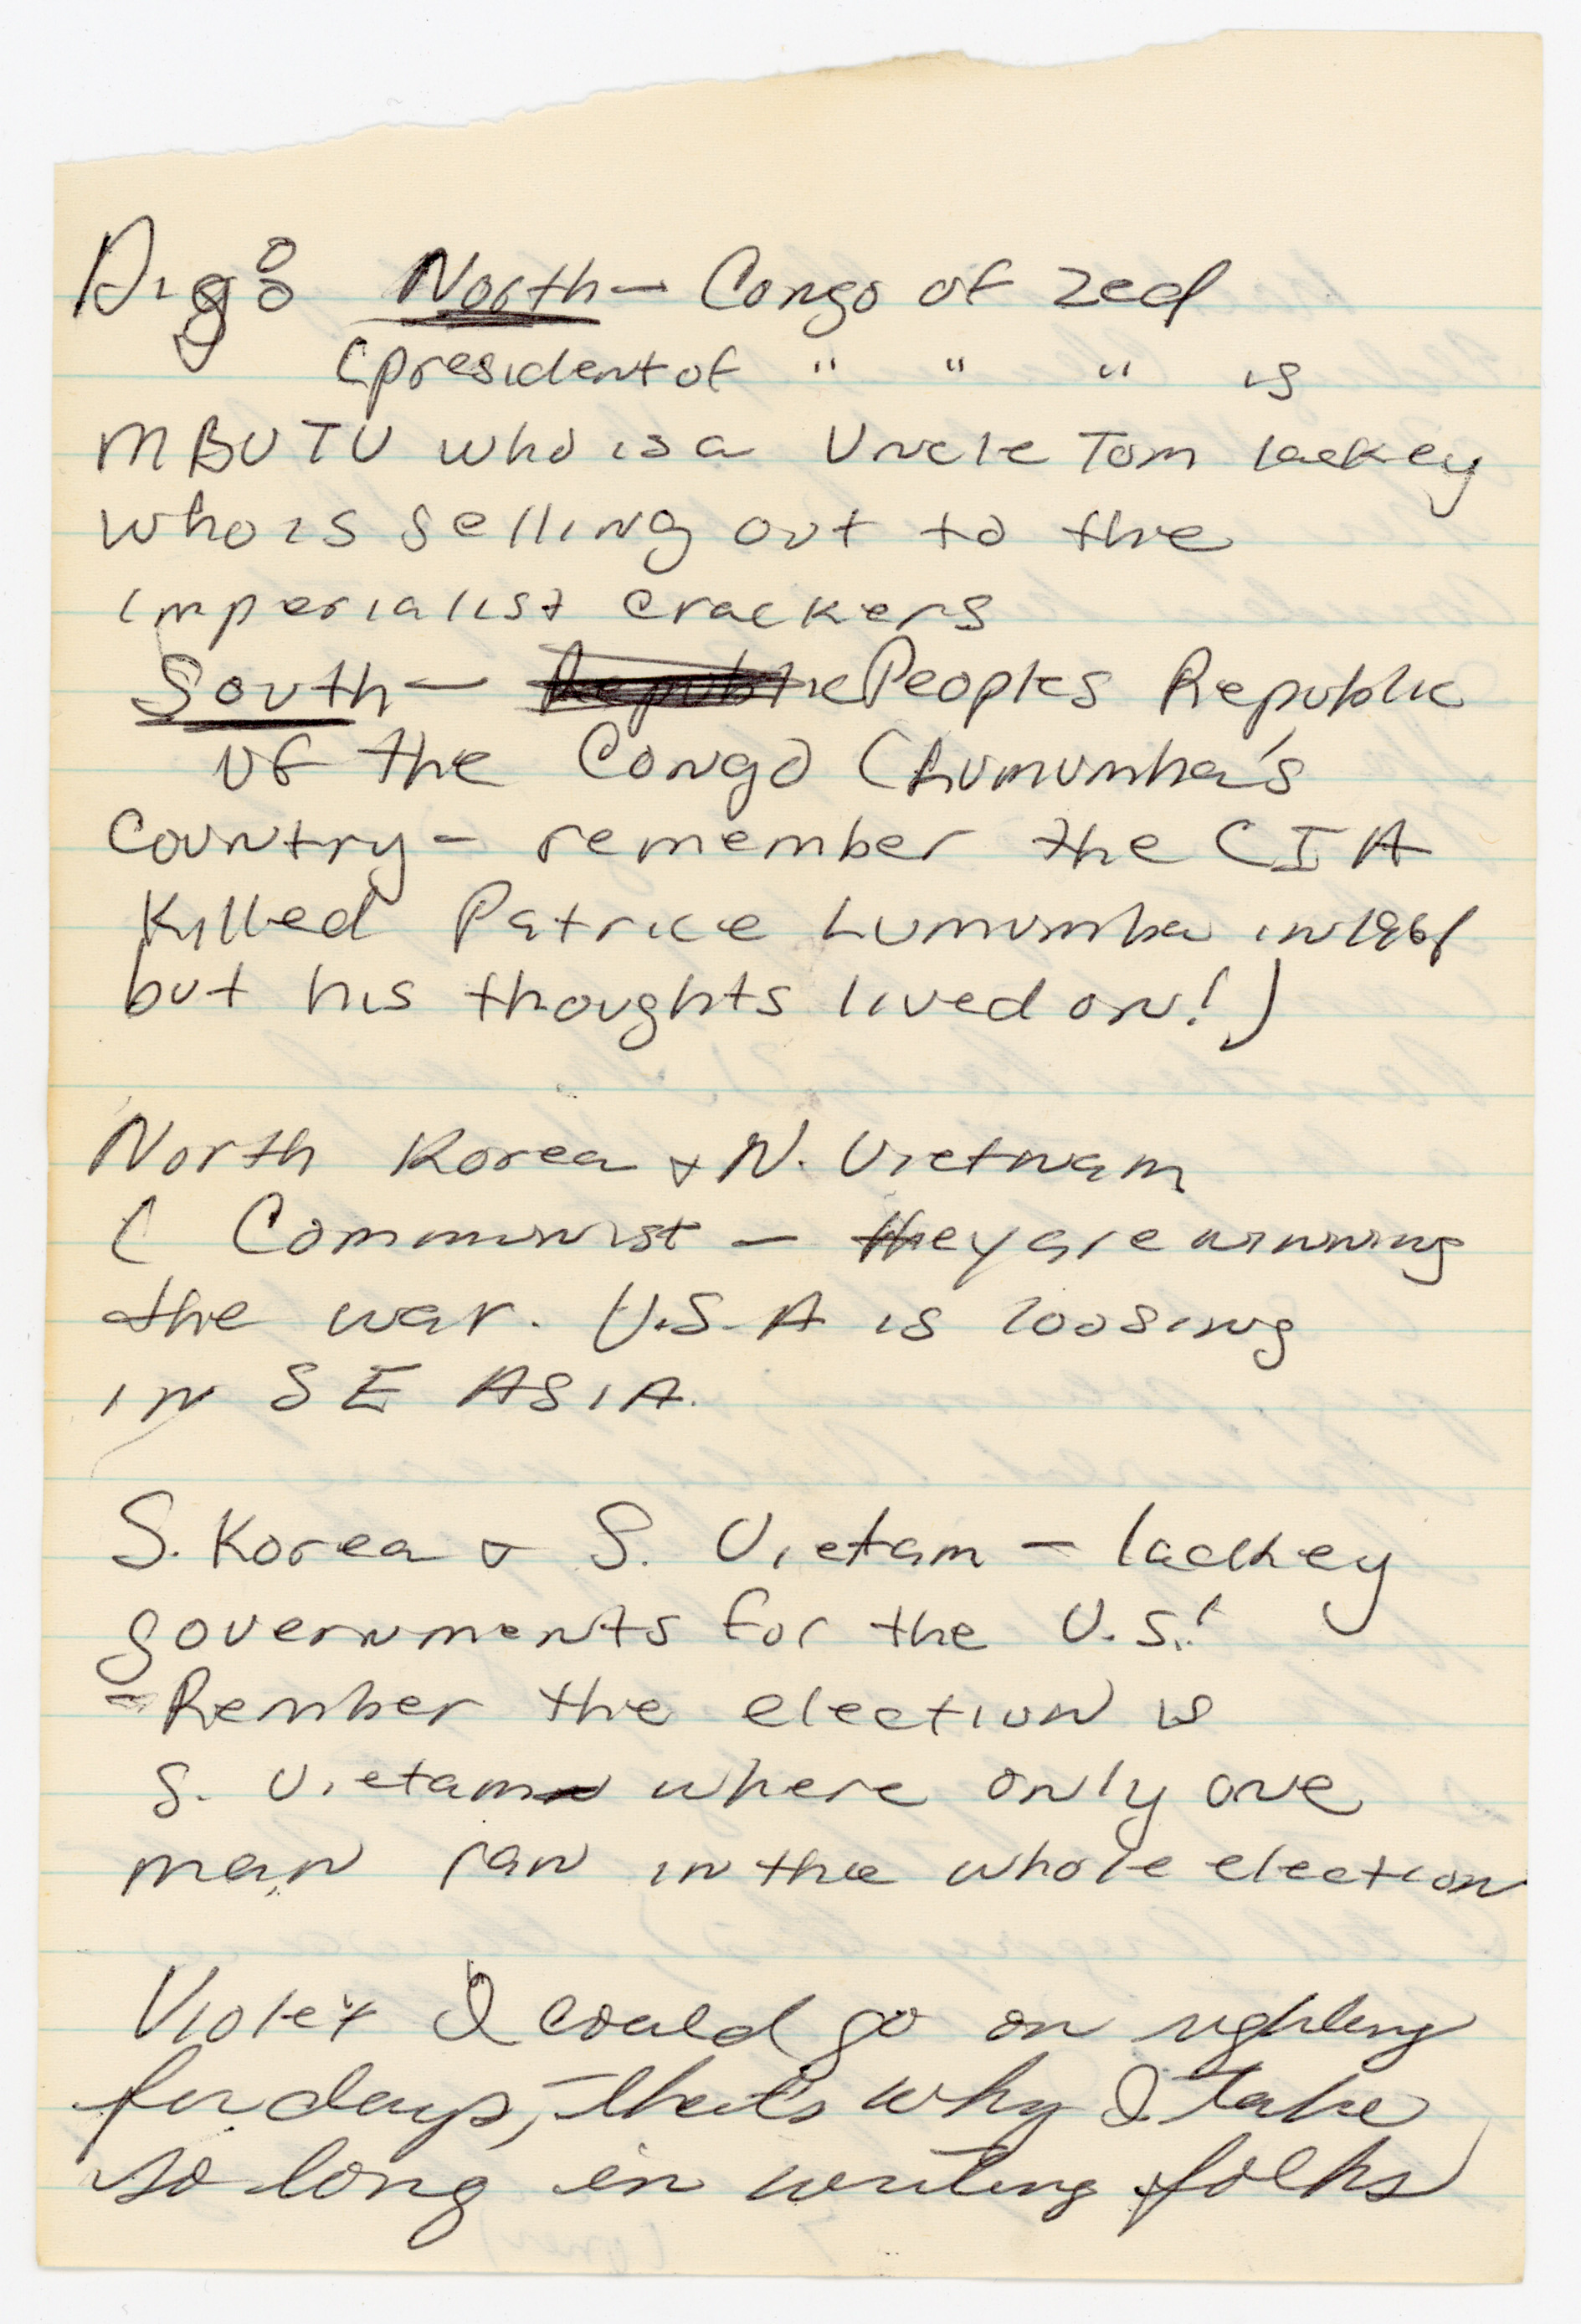 North — Congo of Zed
(president of " " " is
MBUTU who is a Uncle Tom lackey
who is selling out to the
imperialist crackers
South — Peoples Republic
of the Congo (Lumumba's
Country - remember the CIA
Killed Patrice Lumumba in 1961
but his thoughts lived on!)
North Korea & N. Vietnam
( Communist — they are winning
the war. U.S.A is loosing
in SE ASIA.
S. Korea & S. Vietam — lackey
governments for the U.S.!
- Rember the election is
S. Vietam where only one
man ran in the whole election
Violet I could go on righting
for days, that's why I take
so long in writing folks